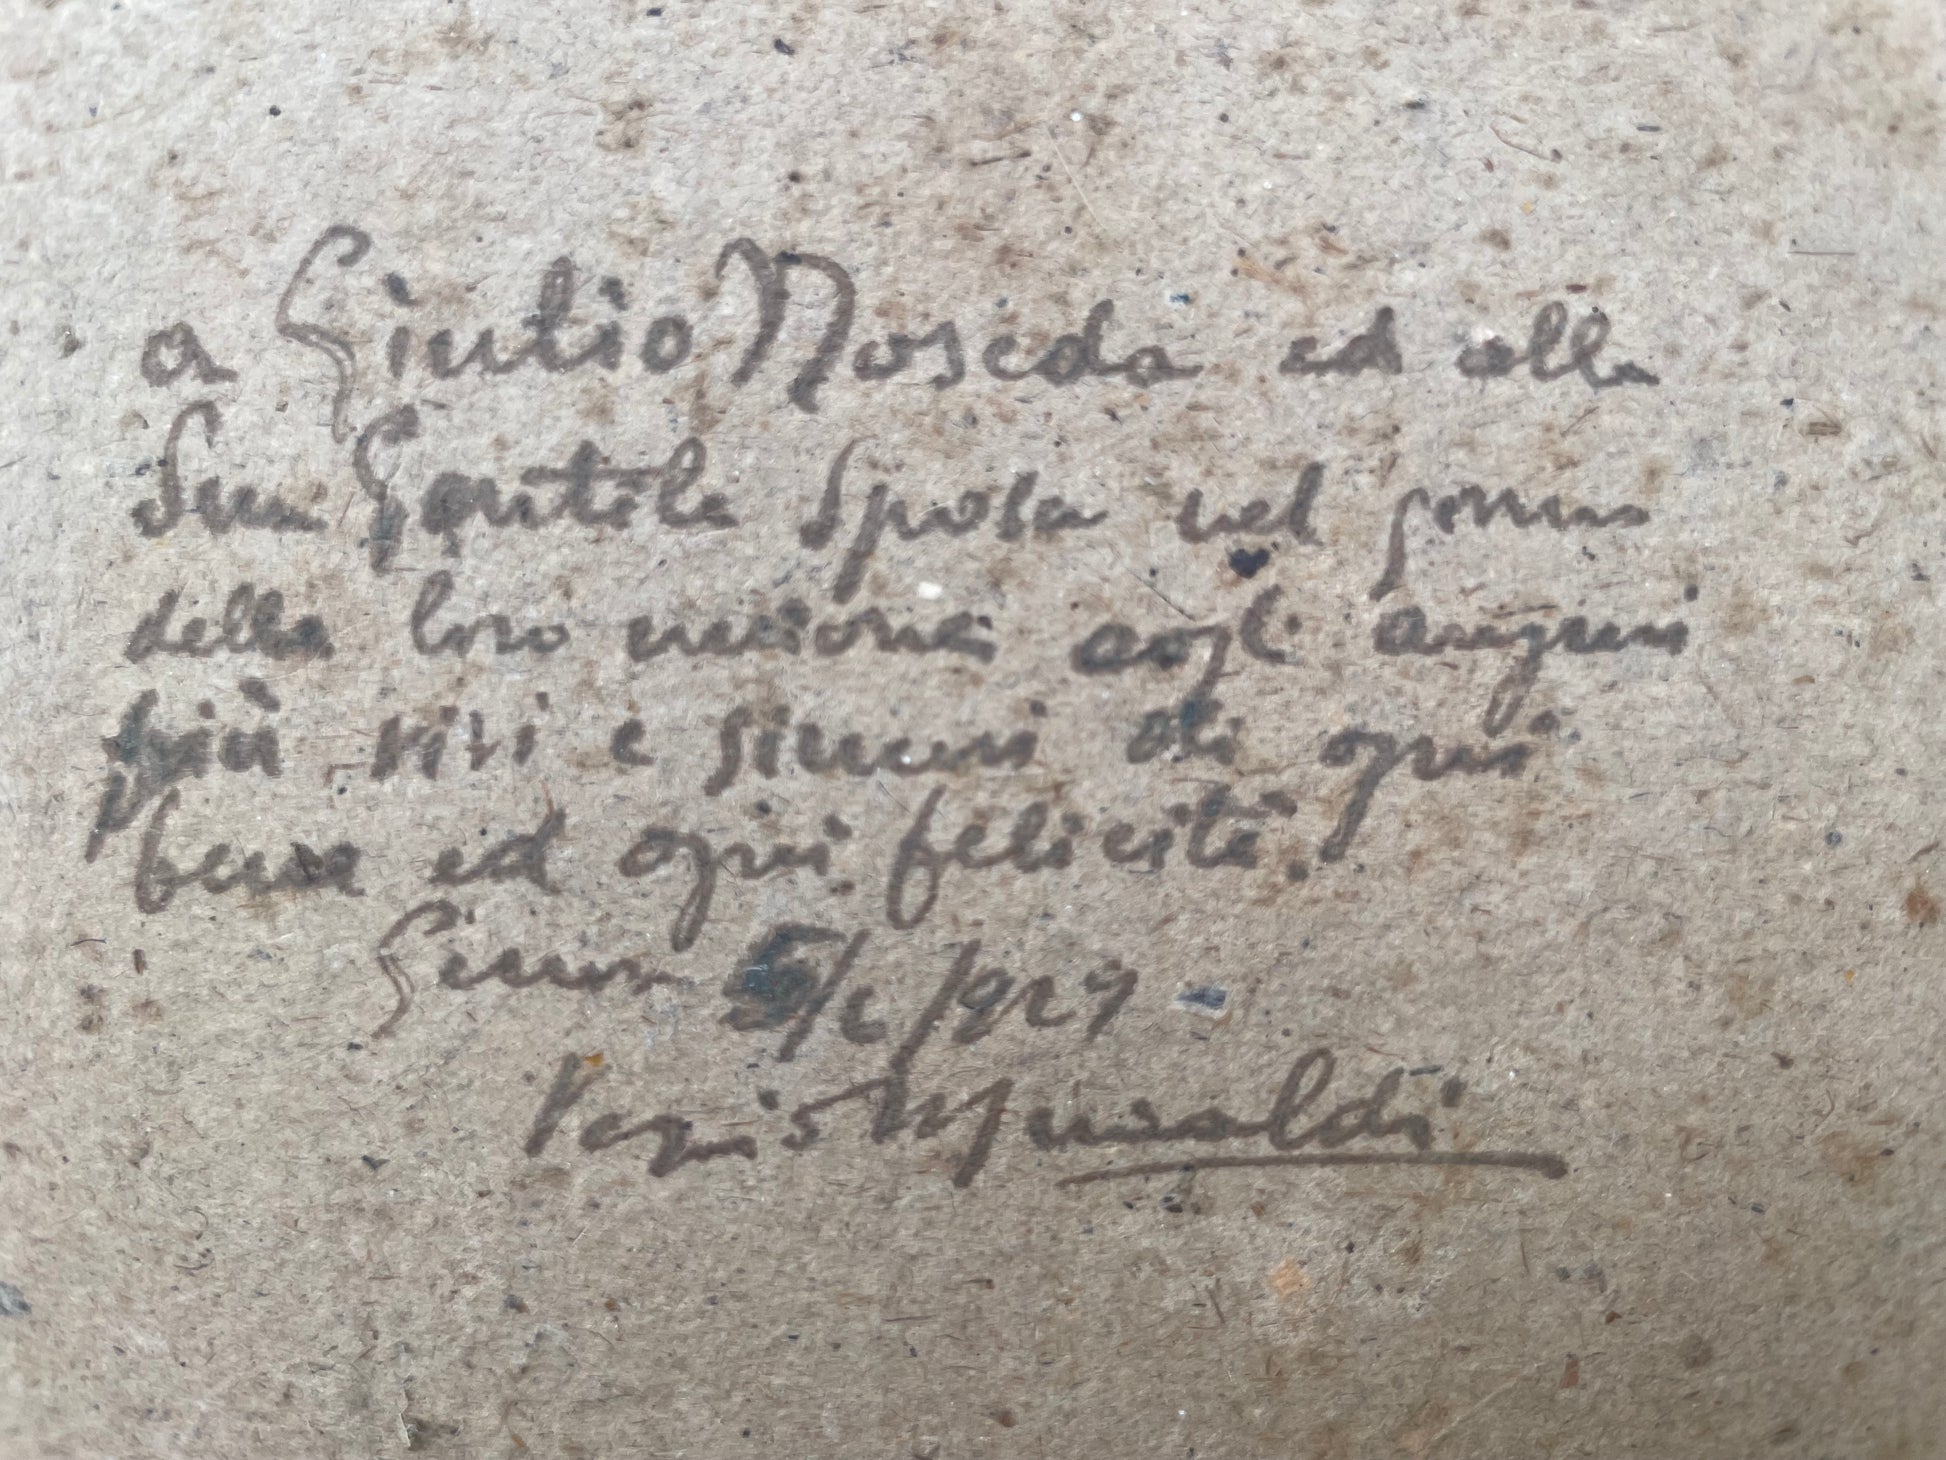 a Giulio Noseda ed alla
Sua Gentile Sposa nel giorno
della loro unione cogli auguri
più vivi e sinceri di ogni
bene ed ogni felicità.
5/6/1929